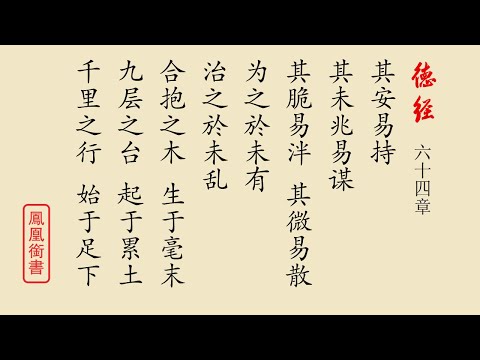 德经
六十四章
其安易持
其未兆易谋
其脆易泮 其微易散
为之於未有
治之於未乱
合抱之木 生于毫末
九层之台 起于累土
千里之行 始于足下
鳳凰銜書